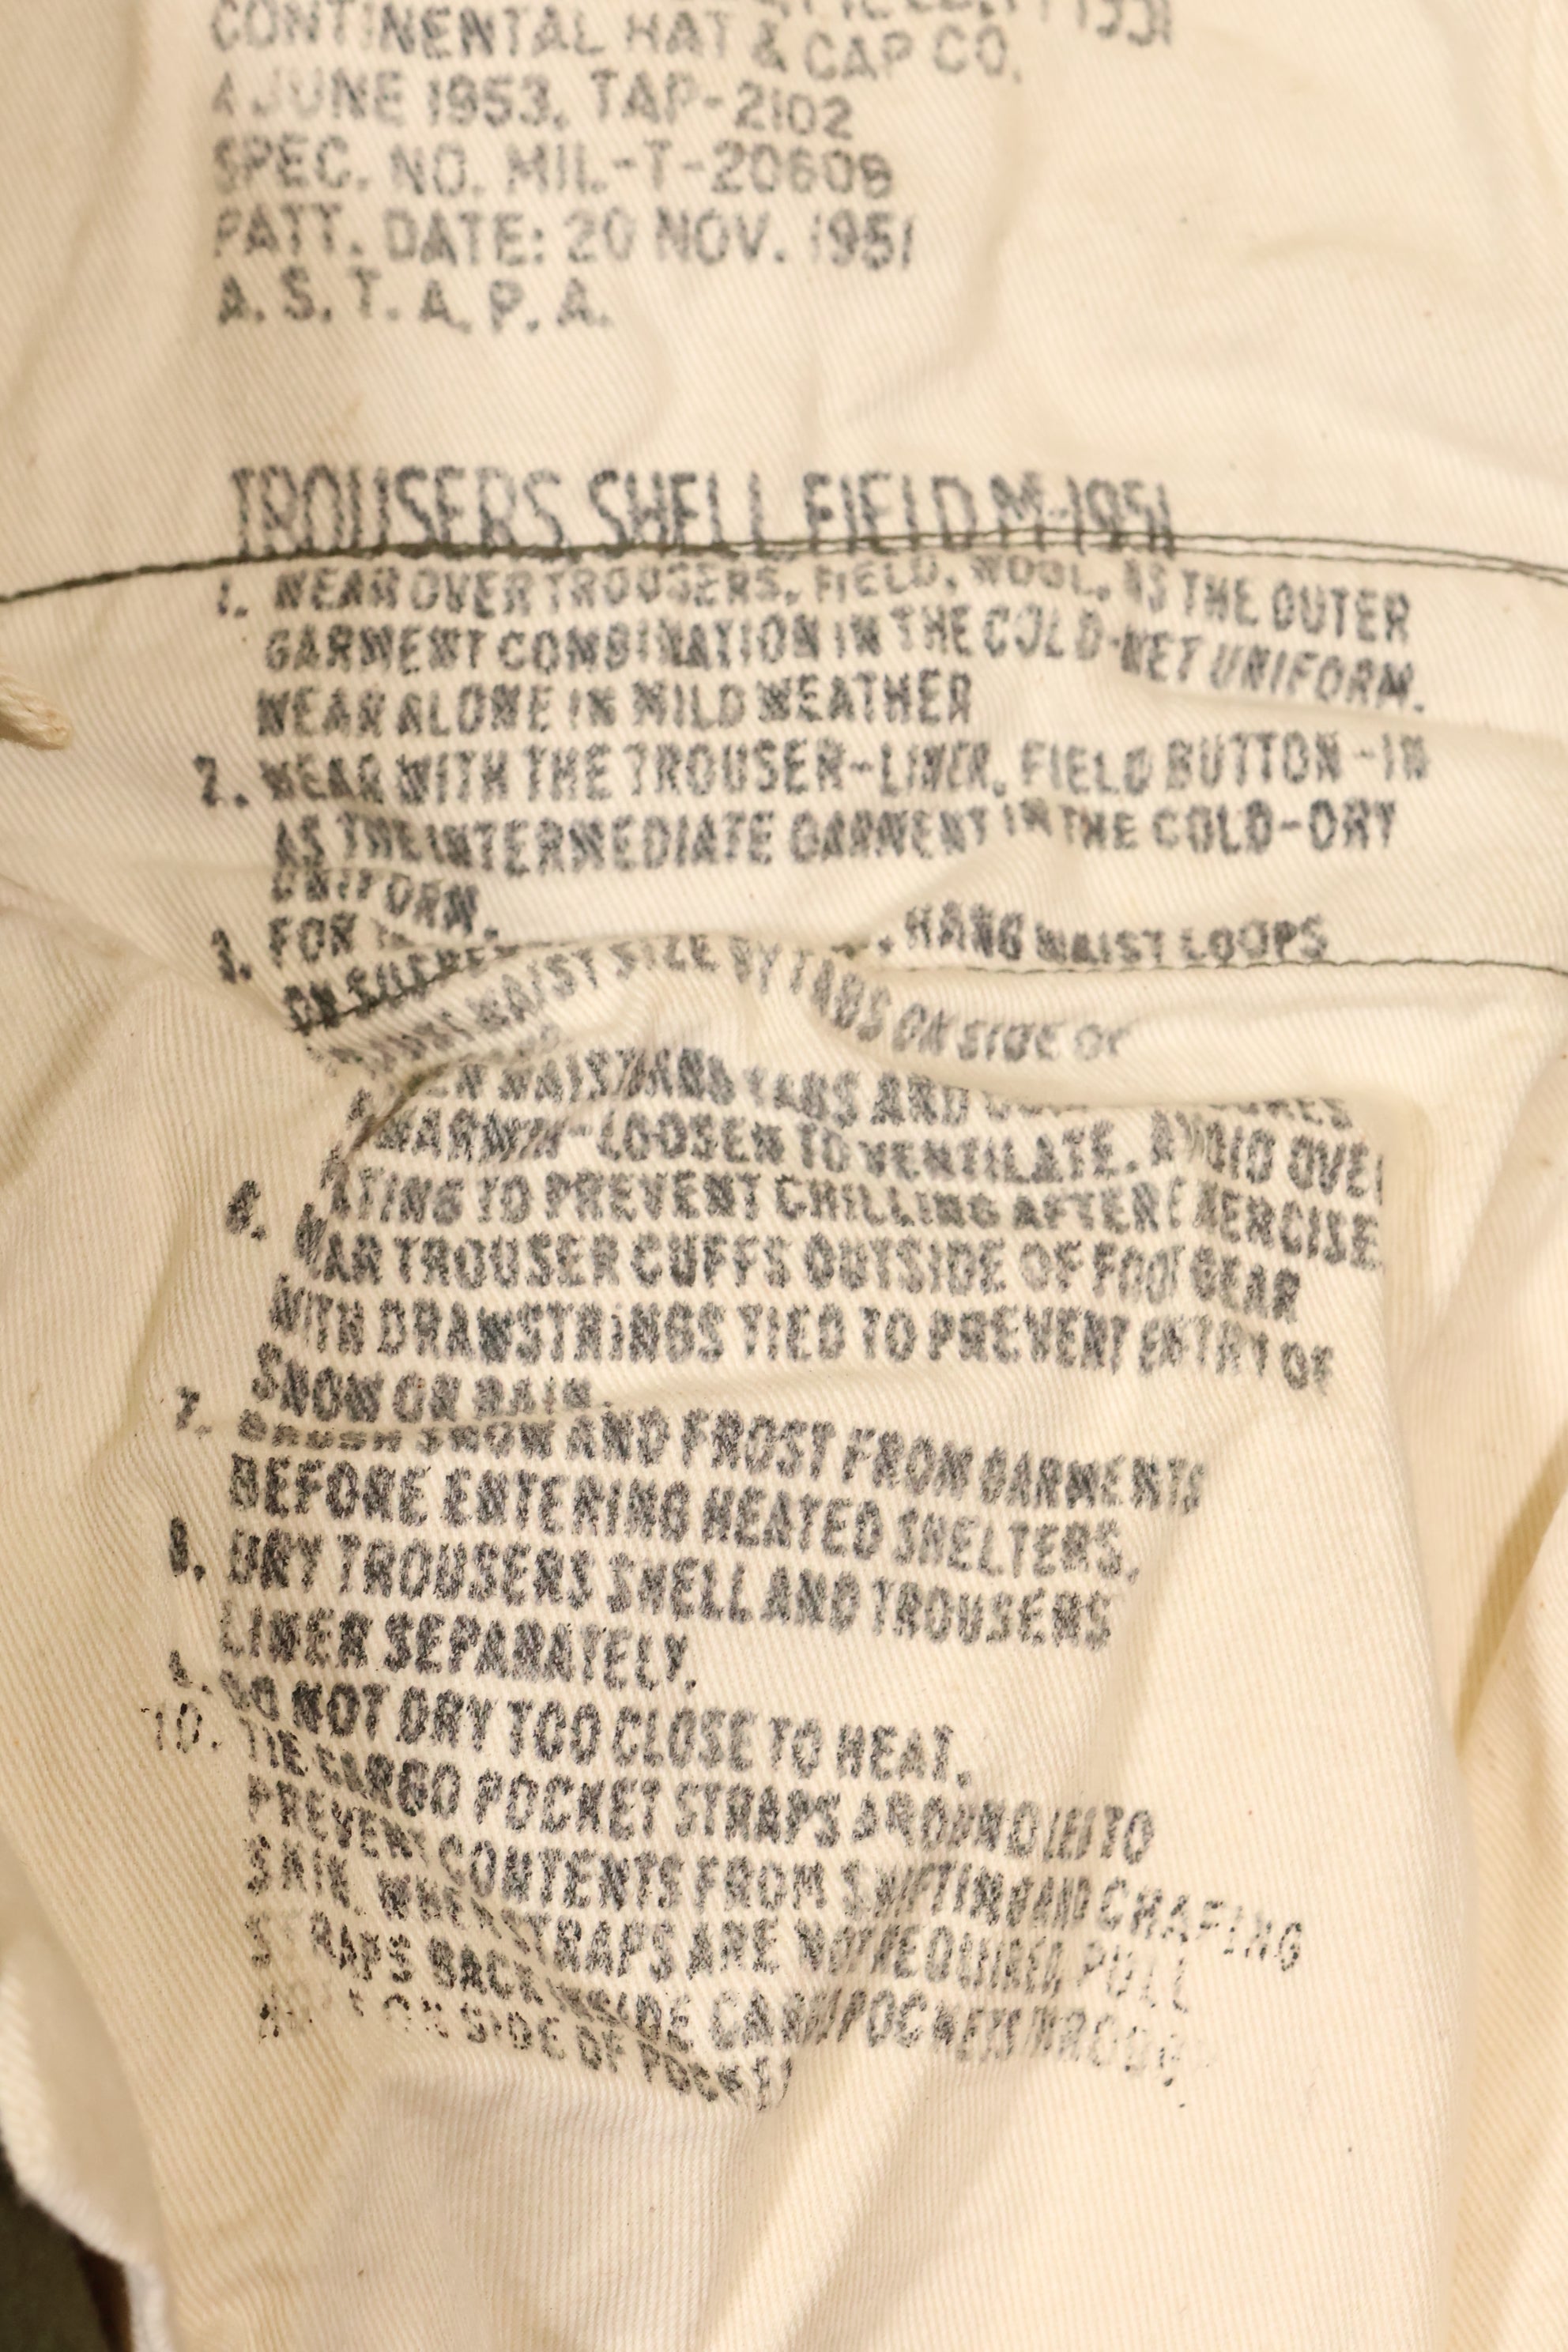 CONTINENTAL HAT & CAP CO.
4 JUNE 1953, TAP-2102
SPEC. NO. MIL-T-20608
PATT. DATE: 20 NOV. 1951
A. S. T. A. P. A.
TROUSERS, SHELL, FIELD M-1951
1. WEAR OVER TROUSERS, FIELD, WOOL, AS THE OUTER
GARMENT COMBINATION IN THE COLD-WET UNIFORM.
WEAR ALONE IN MILD WEATHER
2. WEAR WITH THE TROUSER-LINER, FIELD BUTTON-IN
AS THE INTERMEDIATE GARMENT IN THE COLD-DRY
UNIFORM.
3. FOR HANG WAIST LOOPS
ON
WAIST SIZE BY TABS ON SIDE OF
WAISTBAND TABS AND
WARM - LOOSEN TO VENTILATE. AVOID
TO PREVENT CHILLING AFTER EXERCISE
6. WEAR TROUSER CUFFS OUTSIDE OF FOOT GEAR
WITH DRAWSTRINGS TIED TO PREVENT ENTRY OF
SNOW OR RAIN.
7. BRUSH SNOW AND FROST FROM GARMENTS
BEFORE ENTERING HEATED SHELTERS.
8. DRY TROUSERS SHELL AND TROUSERS
LINER SEPARATELY.
9. DO NOT DRY TOO CLOSE TO HEAT.
10. TIE CARGO POCKET STRAPS AROUND LEG TO
PREVENT CONTENTS FROM SHIFTING AND CHAFING
SKIN. WHEN STRAPS ARE NOT REQUIRED, PULL
STRAPS BACK INSIDE CARGO POCKETS THROUGH
ON SIDE OF POCKET